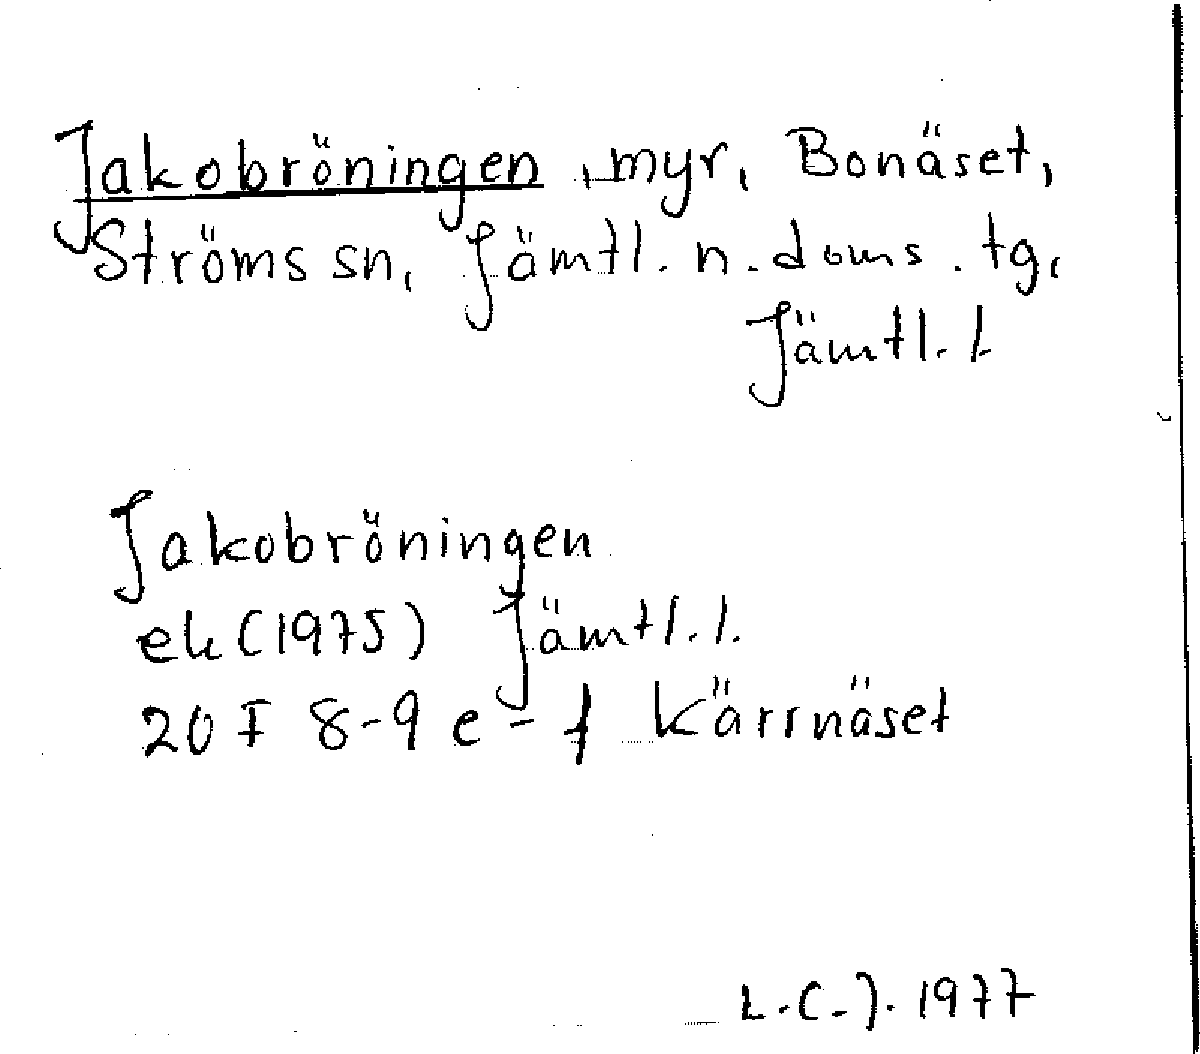 Jakobröningen, myr, Bonäset,
Ströms sn, Jämtl. n. doms. tg,
Jämtl. l.
Jakobröningen
ek (1975) Jämtl. l.
20 F 8-9 e-f Kärrnäset
L.C.J. 1977